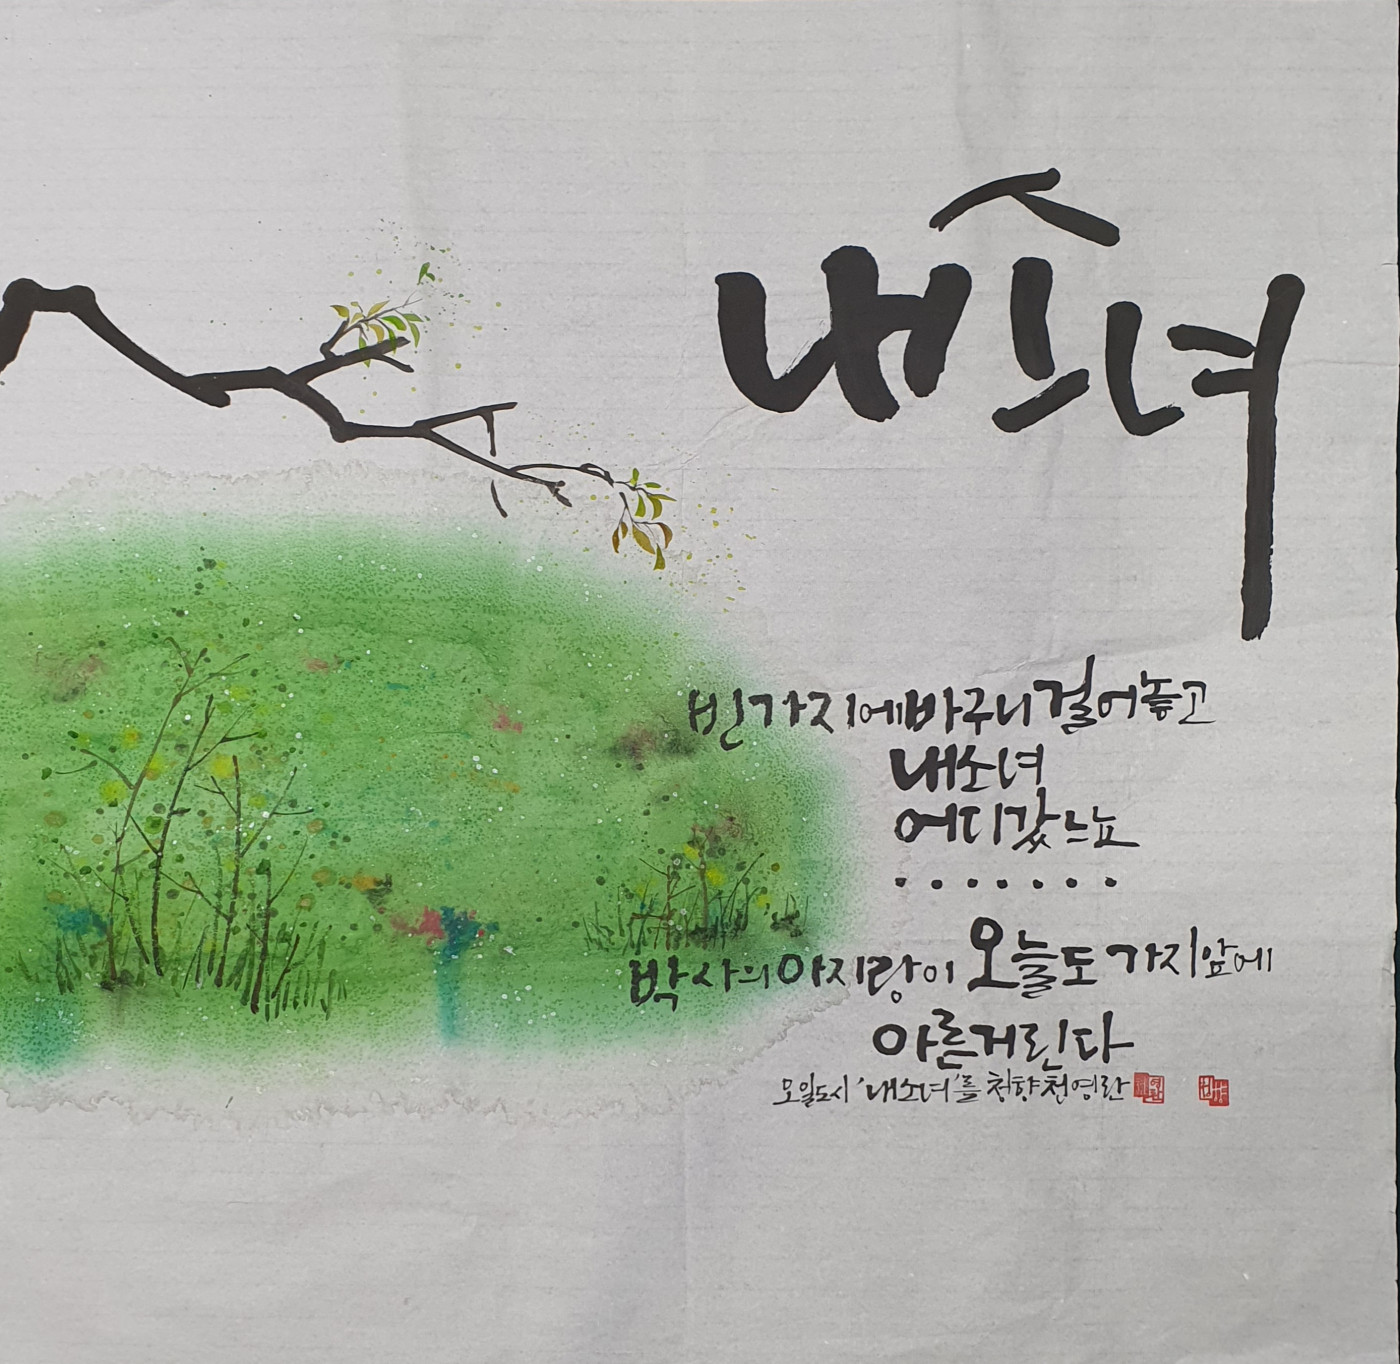 내 소녀
빈 가지에 바구니 걸어놓고
내 소녀
어디 갔느뇨
· · · · · · ·
박사의 아지랑이 오늘도 가지 앞에
아른거린다
오일도 시 '내 소녀'를 청향 천영란